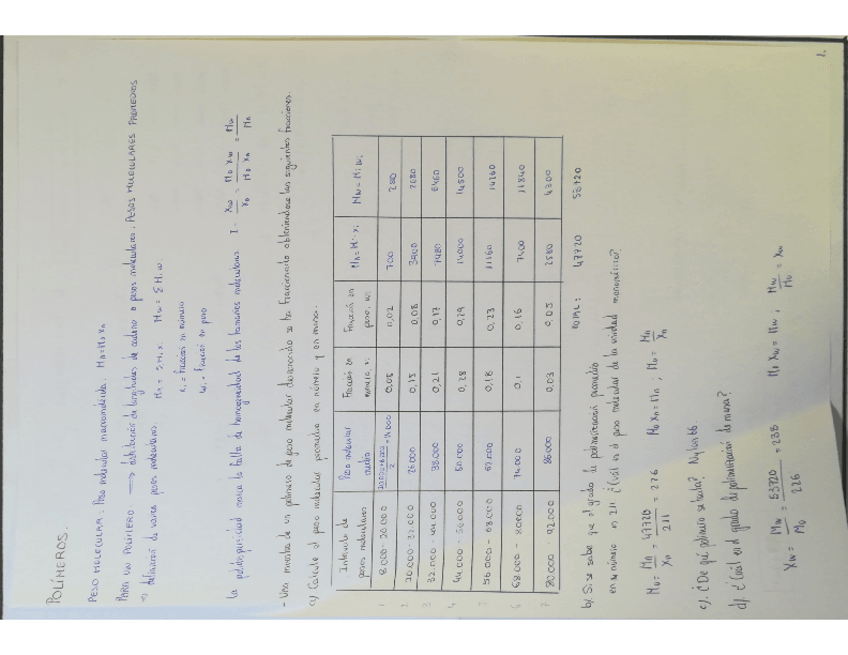 POLÍMEROS.
PESO MOLECULAR: Peso molecular macromolécula: Mn = Mo xn
PARA UN POLÍMERO → distribución de longitudes de cadena o pesos moleculares. PESOS MOLECULARES PROMEDIOS
⇒ de varios pesos moleculares.
Mn = ΣMi xi Mw = ΣMi wi
xi = Fracción en número
wi = Fracción en peso
La polidispersidad marca la falta de homogeneidad de los tamaños moleculares I = xw/xn = Mo xw/Mo xn = Mw/Mn
- Una muestra de un polímero de peso molecular desconocido se ha fraccionado obteniéndose las siguientes fracciones.
a) Calcule el peso molecular promedio en número y en masa.
Intervalo de pesos moleculares | Peso molecular medio | Fracción en número, xi | Fracción en peso, wi | Mn = Mi · xi | Mw = Mi wi
1 8.000 - 20.000 | 20.000+8.000/2 = 14.000 | 0,05 | 0,02 | 700 | 280
2 20.000 - 32.000 | 26.000 | 0,15 | 0,08 | 3900 | 2080
3 32.000 - 44.000 | 38.000 | 0,21 | 0,17 | 7980 | 6460
4 44.000 - 56.000 | 50.000 | 0,28 | 0,29 | 14000 | 14500
5 56.000 - 68.000 | 62.000 | 0,18 | 0,23 | 11160 | 14260
6 68.000 - 80.000 | 74.000 | 0,1 | 0,16 | 7400 | 11840
7 80.000 - 92.000 | 86.000 | 0,03 | 0,05 | 2580 | 4300
TOTAL: 47720 53720
b) Si se sabe que el grado de polimerización promedio
en número es 211 ¿Cuál es el peso molecular de la unidad monomérica?
Mo = Mn/xn = 47720/211 = 226 Mo xn = Mn ; Mo = Mn/xn
c). ¿De qué polímero se trata? Nylon 66
d). ¿Cuál es el grado de polimerización de masa?
Xw = Mw/Mo = 53720/226 = 238 Mo xw = Mw ; Mw/Mo = xw
1.